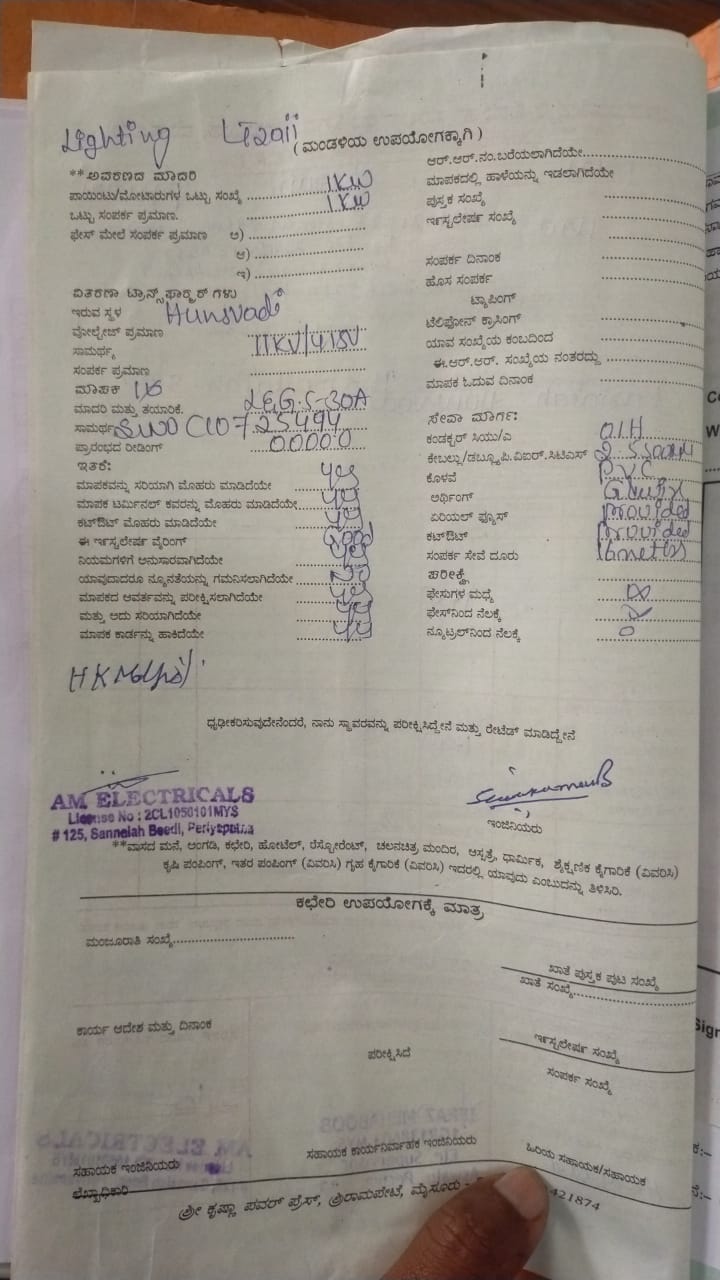 Lighting
(ಮಂಡಳಿಯ ಉಪಯೋಗಕ್ಕಾಗಿ)
**ಅವರಣದ ಮಾದರಿ
ಪಾಯಿಂಟು/ಮೋಟಾರುಗಳ ಒಟ್ಟು ಸಂಖ್ಯೆ 1KW
ಒಟ್ಟು ಸಂಪರ್ಕ ಪ್ರಮಾಣ. 1KW
ಫೇಸ್ ಮೇಲೆ ಸಂಪರ್ಕ ಪ್ರಮಾಣ ಅ)
ಆ)
ಇ)
ವಿತರಣಾ ಟ್ರಾನ್ಸ್‌ಫಾರ್ಮರ್ ಗಳು
ಇರುವ ಸ್ಥಳ
ವೋಲ್ಟೇಜ್ ಪ್ರಮಾಣ
ಸಾಮರ್ಥ್ಯ 11KV/415V
ಸಂಪರ್ಕ ಪ್ರಮಾಣ
ಮಾಪಕ
ಮಾದರಿ ಮತ್ತು ತಯಾರಿಕೆ.
ಸಾಮರ್ಥ್ಯ
ಪ್ರಾರಂಭದ ರೀಡಿಂಗ್
ಇತರೆ:
ಮಾಪಕವನ್ನು ಸರಿಯಾಗಿ ಮೊಹರು ಮಾಡಿದೆಯೇ yes
ಮಾಪಕ ಟರ್ಮಿನಲ್ ಕವರನ್ನು ಮೊಹರು ಮಾಡಿದೆಯೇ yes
ಕಟ್‌ಔಟ್ ಮೊಹರು ಮಾಡಿದೆಯೇ yes
ಈ ಇನ್ಸ್ಟಲೇಷನ್ ವೈರಿಂಗ್ Good
ನಿಯಮಗಳಿಗೆ ಅನುಸಾರವಾಗಿದೆಯೇ yes
ಯಾವುದಾದರೂ ನ್ಯೂನತೆಯನ್ನು ಗಮನಿಸಲಾಗಿದೆಯೇ No
ಮಾಪಕದ ಆವರ್ತವನ್ನು ಪರೀಕ್ಷಿಸಲಾಗಿದೆಯೇ yes
ಮತ್ತು ಅದು ಸರಿಯಾಗಿದೆಯೇ yes
ಮಾಪಕ ಕಾರ್ಡನ್ನು ಹಾಕಿದೆಯೇ yes
ಆರ್.ಆರ್.ನಂ.ಬರೆಯಲಾಗಿದೆಯೇ
ಮಾಪಕದಲ್ಲಿ ಹಾಳೆಯನ್ನು ಇಡಲಾಗಿದೆಯೇ
ಪುಸ್ತಕ ಸಂಖ್ಯೆ
ಇನ್ಸ್ಟಲೇಷನ್ ಸಂಖ್ಯೆ
ಸಂಪರ್ಕ ದಿನಾಂಕ
ಹೊಸ ಸಂಪರ್ಕ
ಟ್ಯಾಪಿಂಗ್
ಟೆಲಿಫೋನ್ ಕ್ರಾಸಿಂಗ್
ಯಾವ ಸಂಖ್ಯೆಯ ಕಂಬದಿಂದ
ಈ.ಆರ್.ಆರ್. ಸಂಖ್ಯೆಯ ನಂತರದ್ದು
ಮಾಪಕ ಓದುವ ದಿನಾಂಕ
ಸೇವಾ ಮಾರ್ಗ:
ಕಂಡಕ್ಟರ್ ಸಿಯು/ಎ O.I.H
ಕೇಬಲ್ಲು/ಡಬ್ಲ್ಯೂ.ಪಿ.ವಿ.ಐಆರ್.ಸಿಟಿಎಸ್
ಕೊಳವೆ PVC
ಅರ್ಥಿಂಗ್
ಏರಿಯಲ್ ಫ್ಯೂಸ್ Provided
ಕಟ್‌ಔಟ್ Provided
ಸಂಪರ್ಕ ಸೇವೆ ದೂರು
ಪರೀಕ್ಷೆ
ಫೇಸುಗಳ ಮಧ್ಯೆ
ಫೇಸ್‌ನಿಂದ ನೆಲಕ್ಕೆ
ನ್ಯೂಟ್ರಲ್‌ನಿಂದ ನೆಲಕ್ಕೆ 0
ಧೃಢೀಕರಿಸುವುದೇನೆಂದರೆ, ನಾನು ಸ್ಥಾವರವನ್ನು ಪರೀಕ್ಷಿಸಿದ್ದೇನೆ ಮತ್ತು ರೇಟೆಡ್ ಮಾಡಿದ್ದೇನೆ
AM ELECTRICALS
License No : 2CL1050101MYS
# 125, Sannaiah Beedi, Periyapatna
ಇಂಜಿನಿಯರು
**ವಾಸದ ಮನೆ, ಅಂಗಡಿ, ಕಛೇರಿ, ಹೋಟೆಲ್, ರೆಸ್ಟೋರೆಂಟ್, ಚಲನಚಿತ್ರ ಮಂದಿರ, ಆಸ್ಪತ್ರೆ, ಧಾರ್ಮಿಕ, ಶೈಕ್ಷಣಿಕ ಕೈಗಾರಿಕೆ (ವಿವರಿಸಿ)
ಕೃಷಿ ಪಂಪಿಂಗ್, ಇತರ ಪಂಪಿಂಗ್ (ವಿವರಿಸಿ) ಗೃಹ ಕೈಗಾರಿಕೆ (ವಿವರಿಸಿ) ಇದರಲ್ಲಿ ಯಾವುದು ಎಂಬುದನ್ನು ತಿಳಿಸಿರಿ.
ಕಛೇರಿ ಉಪಯೋಗಕ್ಕೆ ಮಾತ್ರ
ಮಂಜೂರಾತಿ ಸಂಖ್ಯೆ
ಖಾತೆ ಪುಸ್ತಕ ಪುಟ ಸಂಖ್ಯೆ
ಖಾತೆ ಸಂಖ್ಯೆ
ಕಾರ್ಯ ಆದೇಶ ಮತ್ತು ದಿನಾಂಕ
ಪರೀಕ್ಷಿಸಿದೆ
ಇನ್ಸ್ಟಲೇಷನ್ ಸಂಖ್ಯೆ
ಸಂಪರ್ಕ ಸಂಖ್ಯೆ
ಸಹಾಯಕ ಇಂಜಿನಿಯರು
ಸಹಾಯಕ ಕಾರ್ಯನಿರ್ವಾಹಕ ಇಂಜಿನಿಯರು
ಹಿರಿಯ ಸಹಾಯಕ/ಸಹಾಯಕ
ಲೆಖ್ಖಾಧಿಕಾರಿ
ಶ್ರೀ ಕೃಷ್ಣಾ ಪವರ್ ಪ್ರೆಸ್, ಶ್ರೀರಾಮಪೇಟೆ, ಮೈಸೂರು - 421874